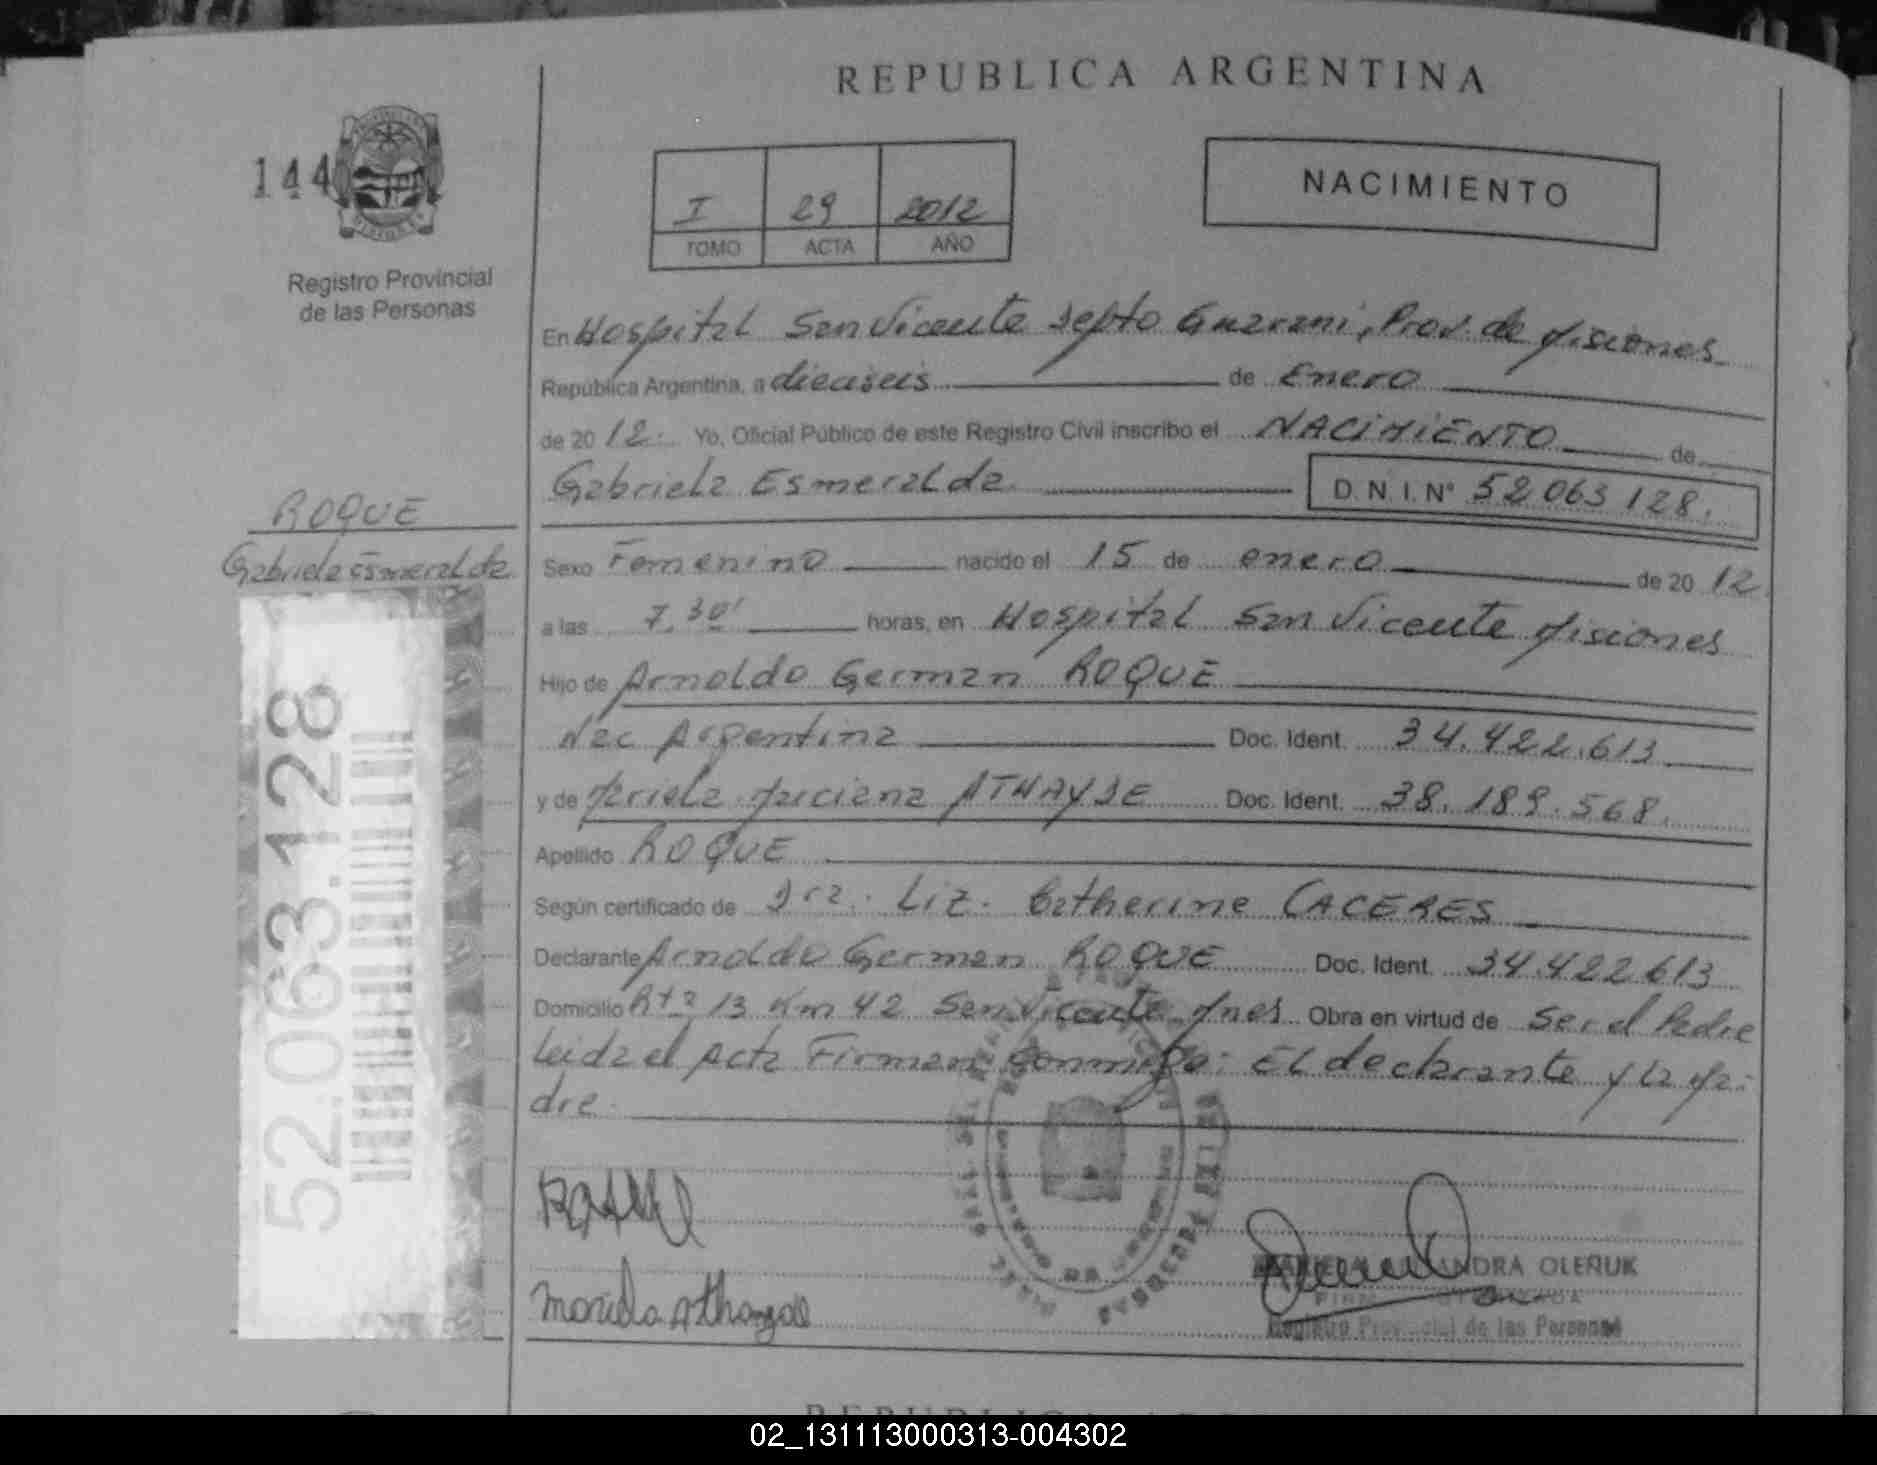 REPUBLICA ARGENTINA
144
NACIMIENTO
I 29 2012
TOMO ACTA AÑO
Registro Provincial
de las Personas
En Hospital San Vicente Depto Guarani, Prov. de Misiones
República Argentina, a dieciseis de Enero
de 2012. Yo, Oficial Público de este Registro Civil inscribo el NACIMIENTO de
Gabriela Esmeralda. D.N.I.Nº 52 063 128.
ROQUE
Gabriela Esmeralda
Sexo Femenino nacido el 15 de enero de 2012
a las 7.30' horas, en Hospital San Vicente Misiones
Hijo de Arnoldo German ROQUE
Nac Argentina Doc. Ident. 34.422.613
y de Mariela Marciana ATHAYDE Doc. Ident. 38.189.568.
Apellido ROQUE
Según certificado de Dra. Liz. Catherine CACERES
Declarante Arnoldo German ROQUE Doc. Ident. 34.422613
Domicilio Rta 13 Km 42 San Vicente Mnes Obra en virtud de Ser el Padre
Leida el Acta Firman conmigo: El declarante y la Ma-
dre.
52.063.128
Mariela Athayde
ANDRA OLEÑUK
Registro Provincial de las Personas
02_131113000313-004302